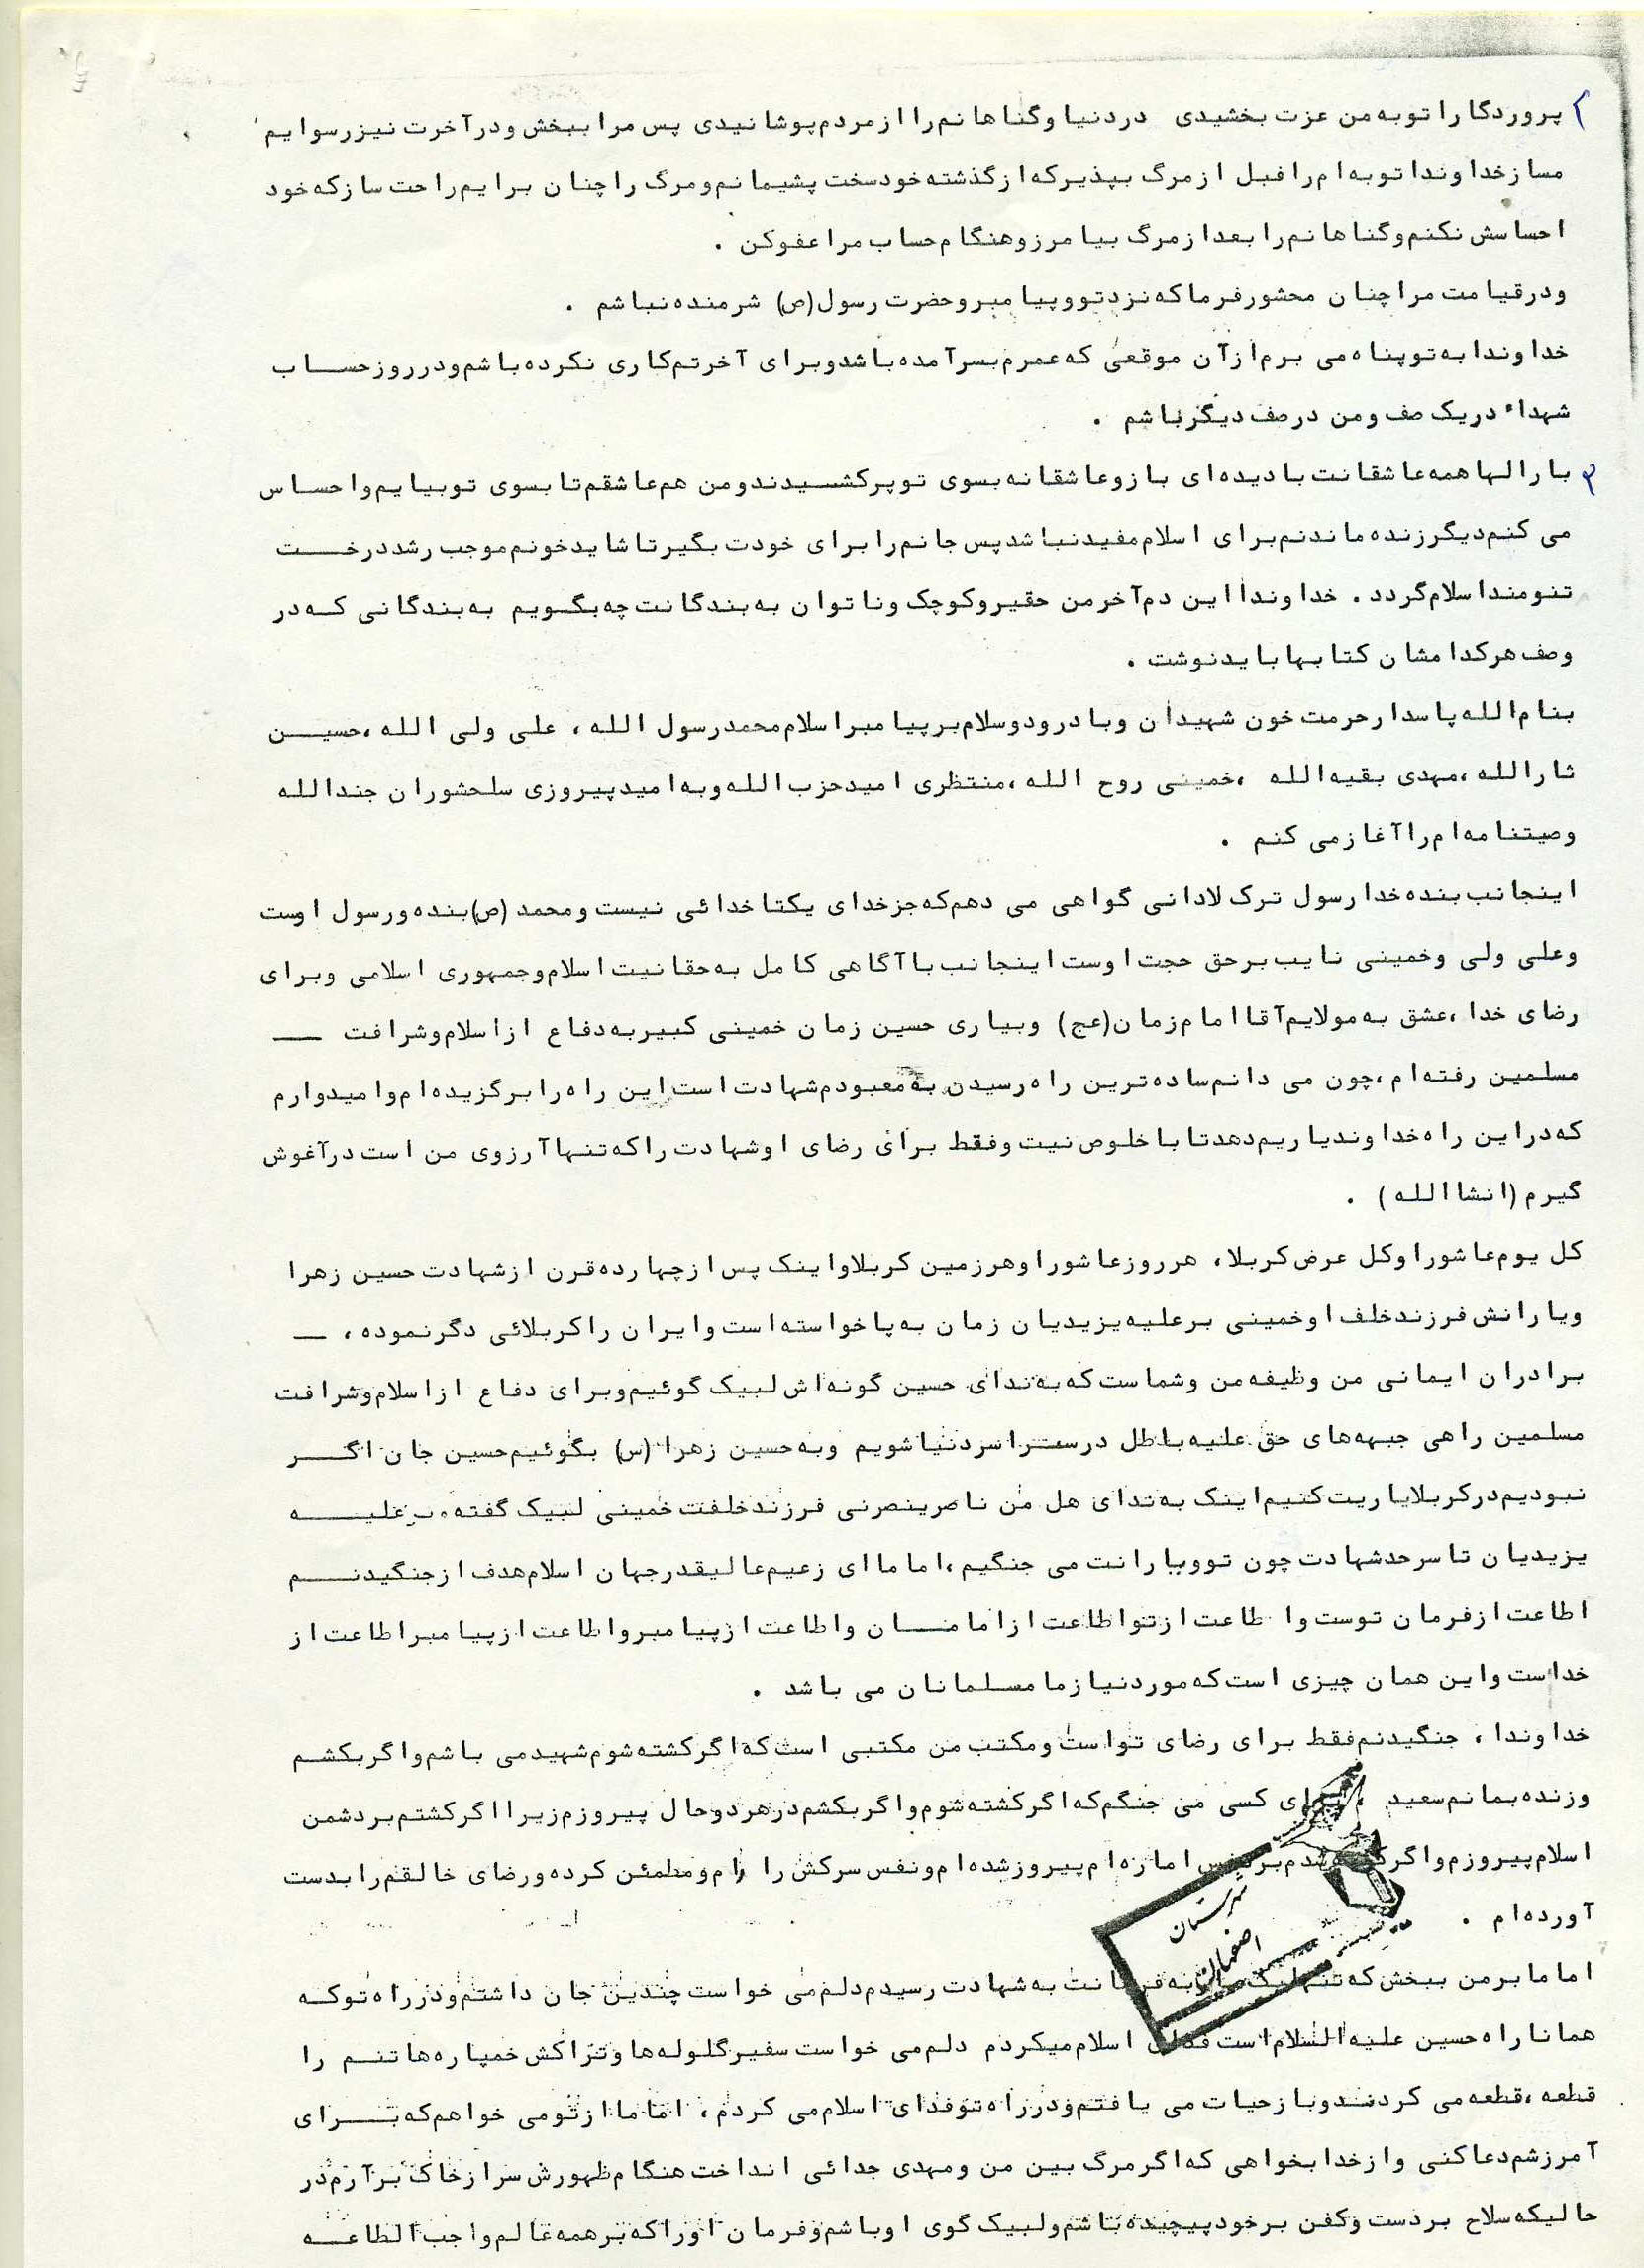 ۲ پروردگارا توبه من عزت بخشیدی دردنیا وگناهانم را ازمردم پوشانیدی پس مرا ببخش ودرآخرت نیزرسوایم
مسازخداوندا توبه ام راقبل ازمرگ بپذیرکه ازگذشته خودسخت پشیمانم ومرگ راچنان برایم راحت سازکه خود
احساسش نکنم وگناهانم را بعدازمرگ بیامرزوهنگام حساب مراعفوکن .
ودرقیامت مراچنان محشورفرماکه نزدتووپیامبروحضرت رسول(ص) شرمنده نباشم .
خداوندا به توپناه می برم ازآن موقعی که عمرم بسرآمده باشدوبرای آخرتم کاری نکرده باشم ودرروزحساب
شهداء دریک صف ومن درصف دیگرباشم .
۳ بارالها همه عاشقانت بادیده ای بازوعاشقانه بسوی توپرکشیدندومن هم عاشقم تا بسوی توبیایم واحساس
می کنم دیگرزنده ماندنم برای اسلام مفیدنباشدپس جانم را برای خودت بگیرتاشایدخونم موجب رشددرخت
تنومنداسلام گردد . خداوندا این دم آخرمن حقیروکوچک وناتوان به بندگانت چه بگویم به بندگانی که در
وصف هرکدامشان کتابها بایدنوشت .
بنام الله پاسدارحرمت خون شهیدان وبادرودوسلام برپیامبراسلام محمدرسول الله ، علی ولی الله ،حسین
ثارالله ،مهدی بقیه الله ،خمینی روح الله ،منتظری امیدحزب الله وبه امیدپیروزی سلحشوران جندالله
وصیتنامه ام راآغازمی کنم .
اینجانب بنده خدا رسول ترک لادانی گواهی می دهم که جزخدای یکتاخدائی نیست ومحمد (ص)بنده ورسول اوست
وعلی ولی وخمینی نایب برحق حجت اوست اینجانب باآگاهی کامل به حقانیت اسلام وجمهوری اسلامی وبرای
رضای خدا ،عشق به مولایم آقاامام زمان(عج) وبیاری حسین زمان خمینی کبیربه دفاع ازاسلام وشرافت —
مسلمین رفته ام ،چون می دانم ساده ترین راه رسیدن به معبودم شهادت است این راه را برگزیده ام وامیدوارم
که دراین راه خداوندیاریم دهدتا باخلوص نیت وفقط برای رضای اوشهادت راکه تنهاآرزوی من است درآغوش
گیرم (انشاالله) .
کل یوم عاشورا وکل عرض کربلا، هرروزعاشورا وهرزمین کربلاواینک پس ازچهارده قرن ازشهادت حسین زهرا
ویارانش فرزندخلف اوخمینی برعلیه یزیدیان زمان به پاخواسته است وایران راکربلائی دگرنموده ، —
برادران ایمانی من وظیفه من وشماست که به ندای حسین گونه اش لبیک گوئیم وبرای دفاع ازاسلام وشرافت
مسلمین راهی جبهه های حق علیه باطل درسترا سردنیاشویم وبه حسین زهرا (س) بگوئیم حسین جان اگر
نبودیم درکربلایاریت کنیم اینک به ندای هل من ناصرینصرنی فرزندخلفت خمینی لبیک گفته برعلیه
یزیدیان تا سرحدشهادت چون توویارانت می جنگیم ،اماما ای زعیم عالیقدرجهان اسلام هدف ازجنگیدنم
اطاعت ازفرمان توست وا طاعت ازتواطاعت ازامامان واطاعت ازپیامبرواطاعت ازپیامبراطاعت از
خداست واین همان چیزی است که موردنیازمامسلمانان می باشد .
خداوندا ، جنگیدنم فقط برای رضای تواست ومکتب من مکتبی است که اگرکشته شوم شهیدمی باشم واگربکشم
وزنده بمانم سعید ، برای کسی می جنگم که اگرکشته شوم واگربکشم درهردوحال پیروزم زیرااگرکشتم بردشمن
اسلام پیروزم واگرکشته شدم برنفس اماره ام پیروزشده ام ونفس سرکش را رام ومطمئن کرده ورضای خالقم را بدست
آورده ام .
امامابرمن ببخش که تنهایک باربه فرمانت به شهادت رسیدم دلم می خواست چندین جان داشتم ودرراه توکه
همانا راه حسین علیه السلام است فدای اسلام میکردم دلم می خواست سفیرگلوله ها وتراکش خمپاره هاتنم را
قطعه ،قطعه می کردندوبازحیات می یافتم ودرراه توفدای اسلام می کردم ، اماما ازتومی خواهم که برای
آمرزشم دعاکنی وازخدابخواهی که اگرمرگ بین من ومهدی جدائی انداخت هنگام ظهورش سرازخاک برآرم در
حالیکه سلاح بردست وکفن برخودپیچیده باشم ولبیک گوی اوباشم وفرمان اوراکه برهمه عالم واجب الطاعه
شهرستان
اصفهان